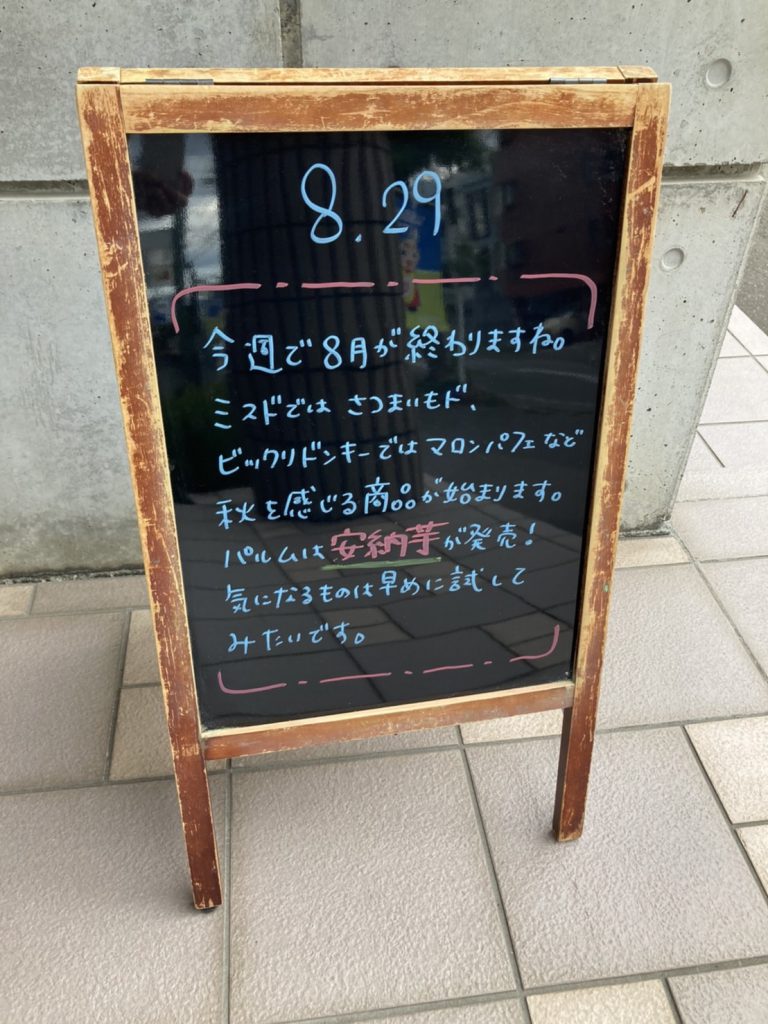 8.29
今週で8月が終わりますね。
ミスドでは さつまいもド、
ビックリドンキーではマロンパフェなど
秋を感じる商品が始まります。
パルムは安納芋が発売!
気になるものは早めに試して
みたいです。